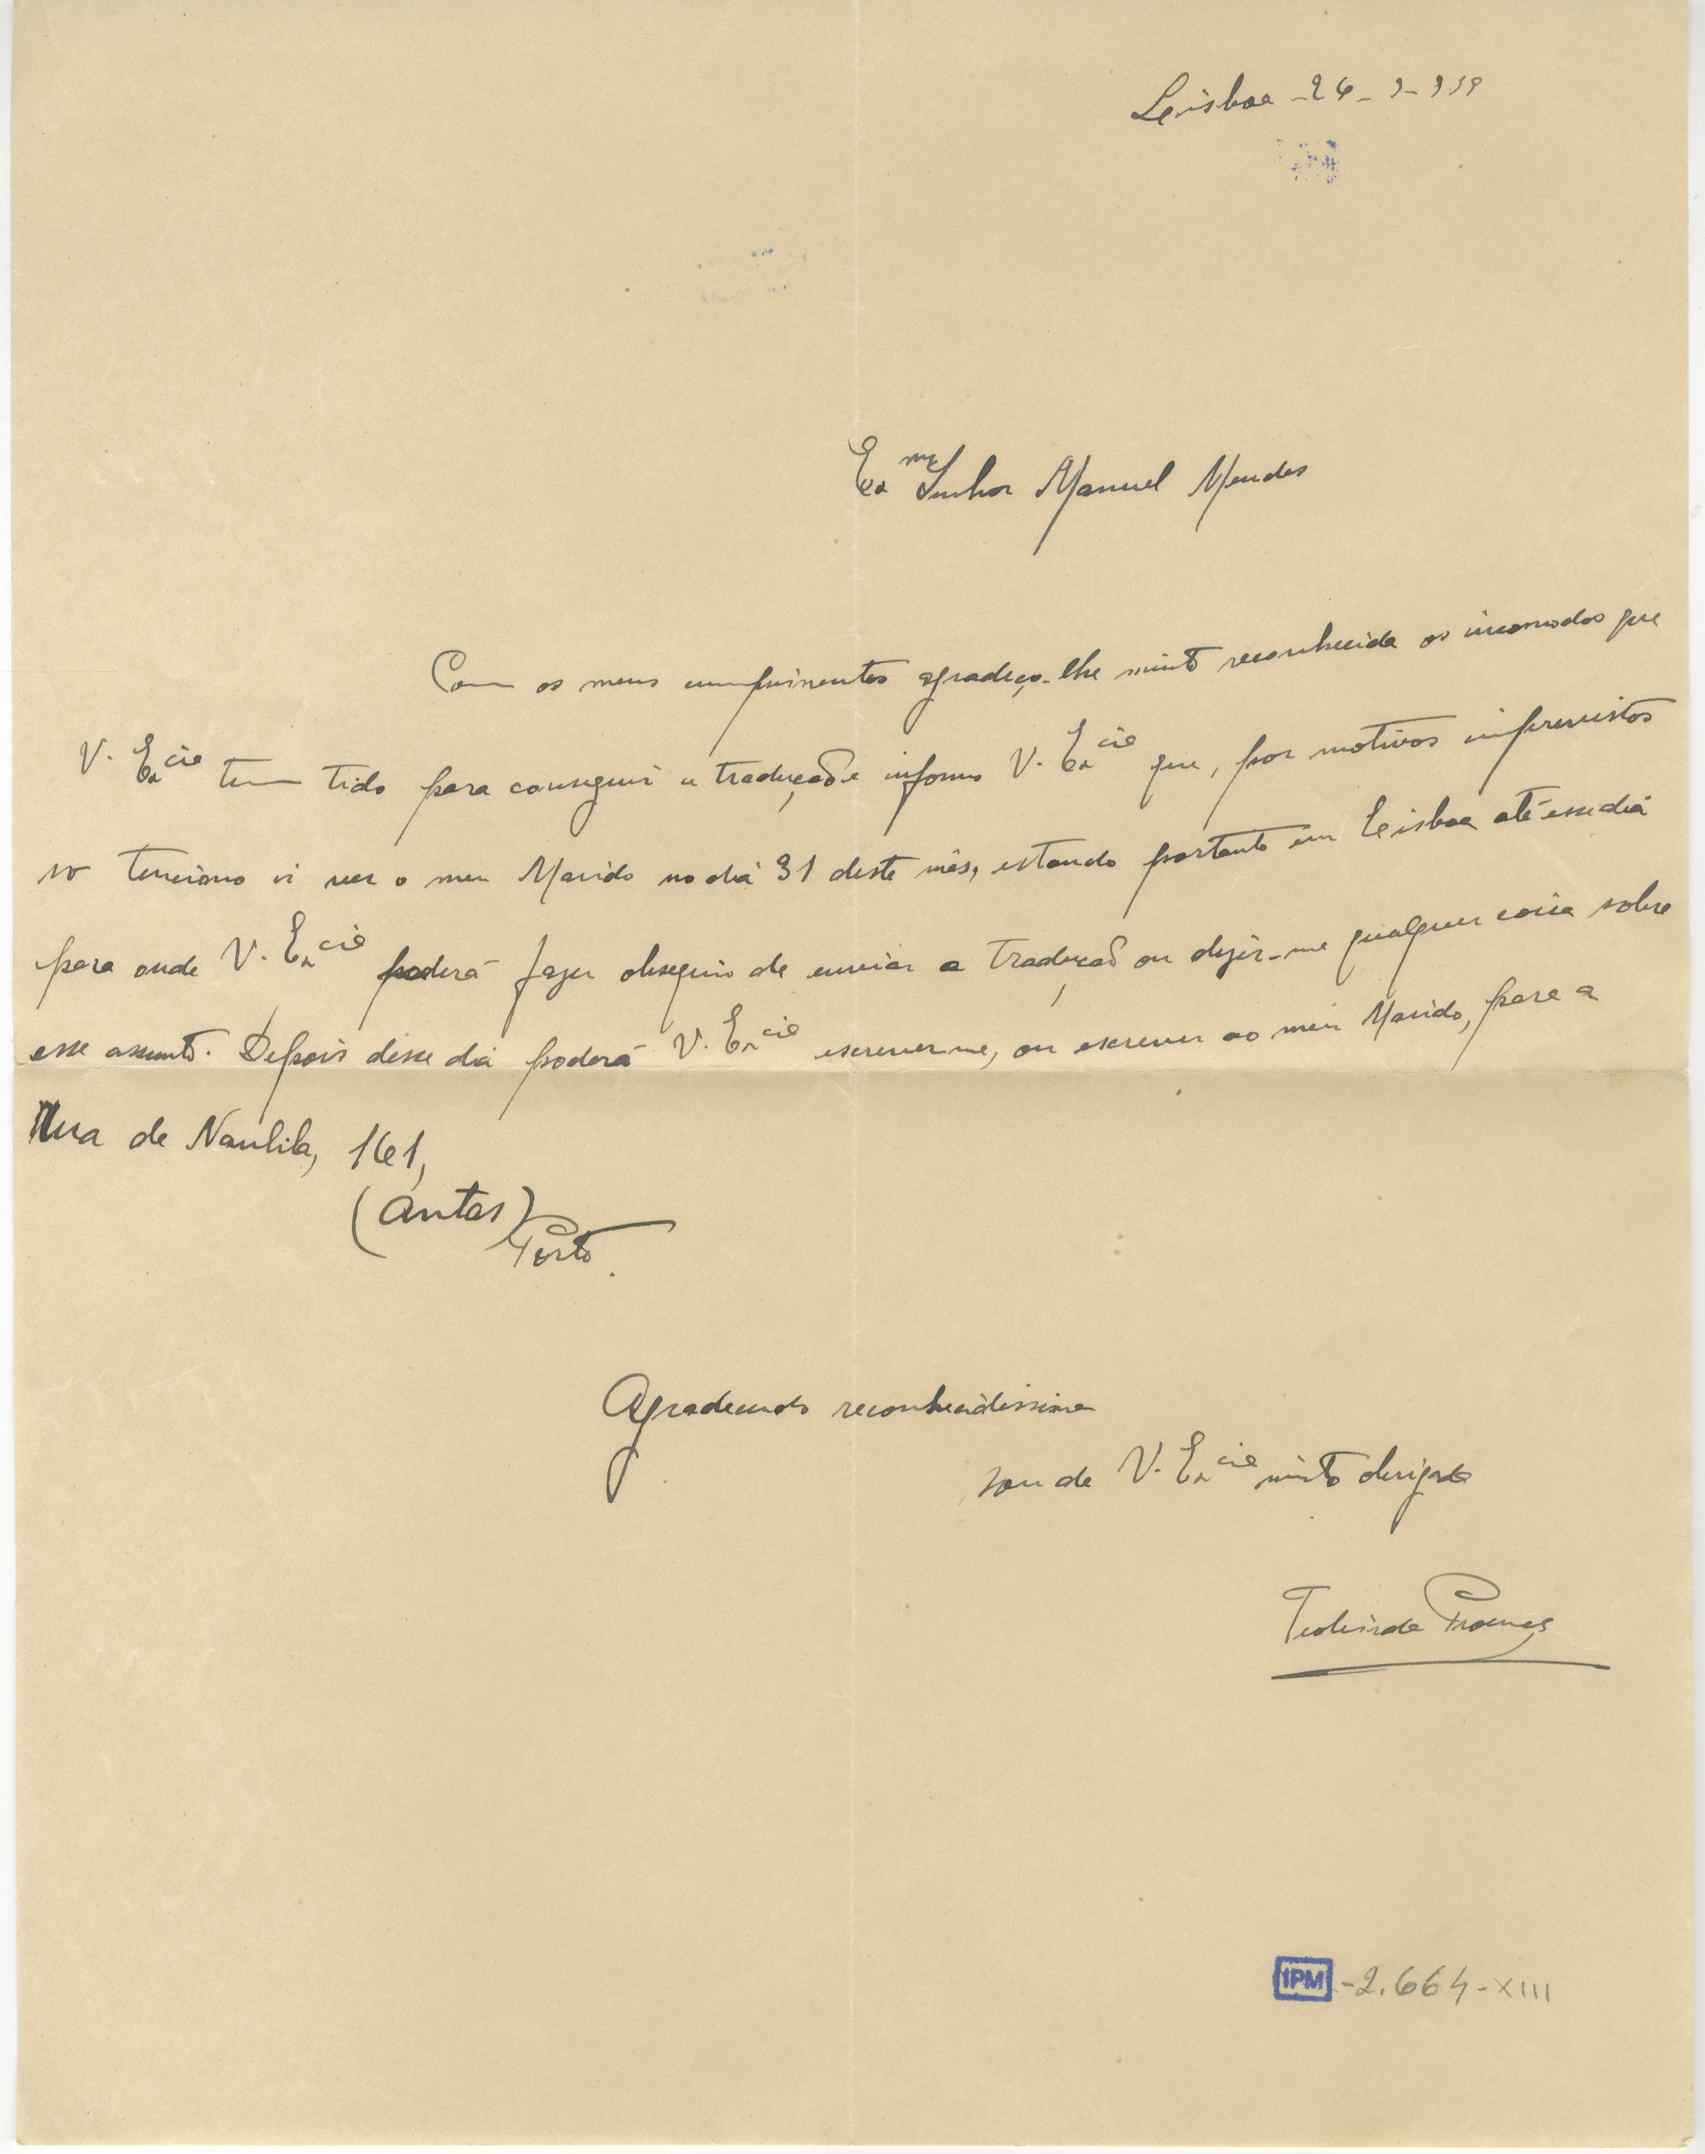 Lisboa - 26 - 3 - 939
Ex.me Senhor Manuel Mendes
Com os meus cumprimentos agradeço-lhe muito reconhecida os incomodos que
V. Excia tem tido para conseguir a tradução e informo V. Excia que, por motivos imprevistos
só tenciono ir ver o meu Marido no dia 31 deste mês, estando portanto em Lisboa até esse dia
para onde V. Excia poderá fazer obsequio de enviar a tradução ou dizer-me qualquer coisa sobre
esse assunto. Depois desse dia poderá V. Excia escrever-me, ou escrever ao meu Marido, para a
Rua de Naulila, 161,
(Antas)
Porto.
Agradecendo reconhecidissima
sou de V. Excia muito obrigada
IPM - 2.664 - XIII